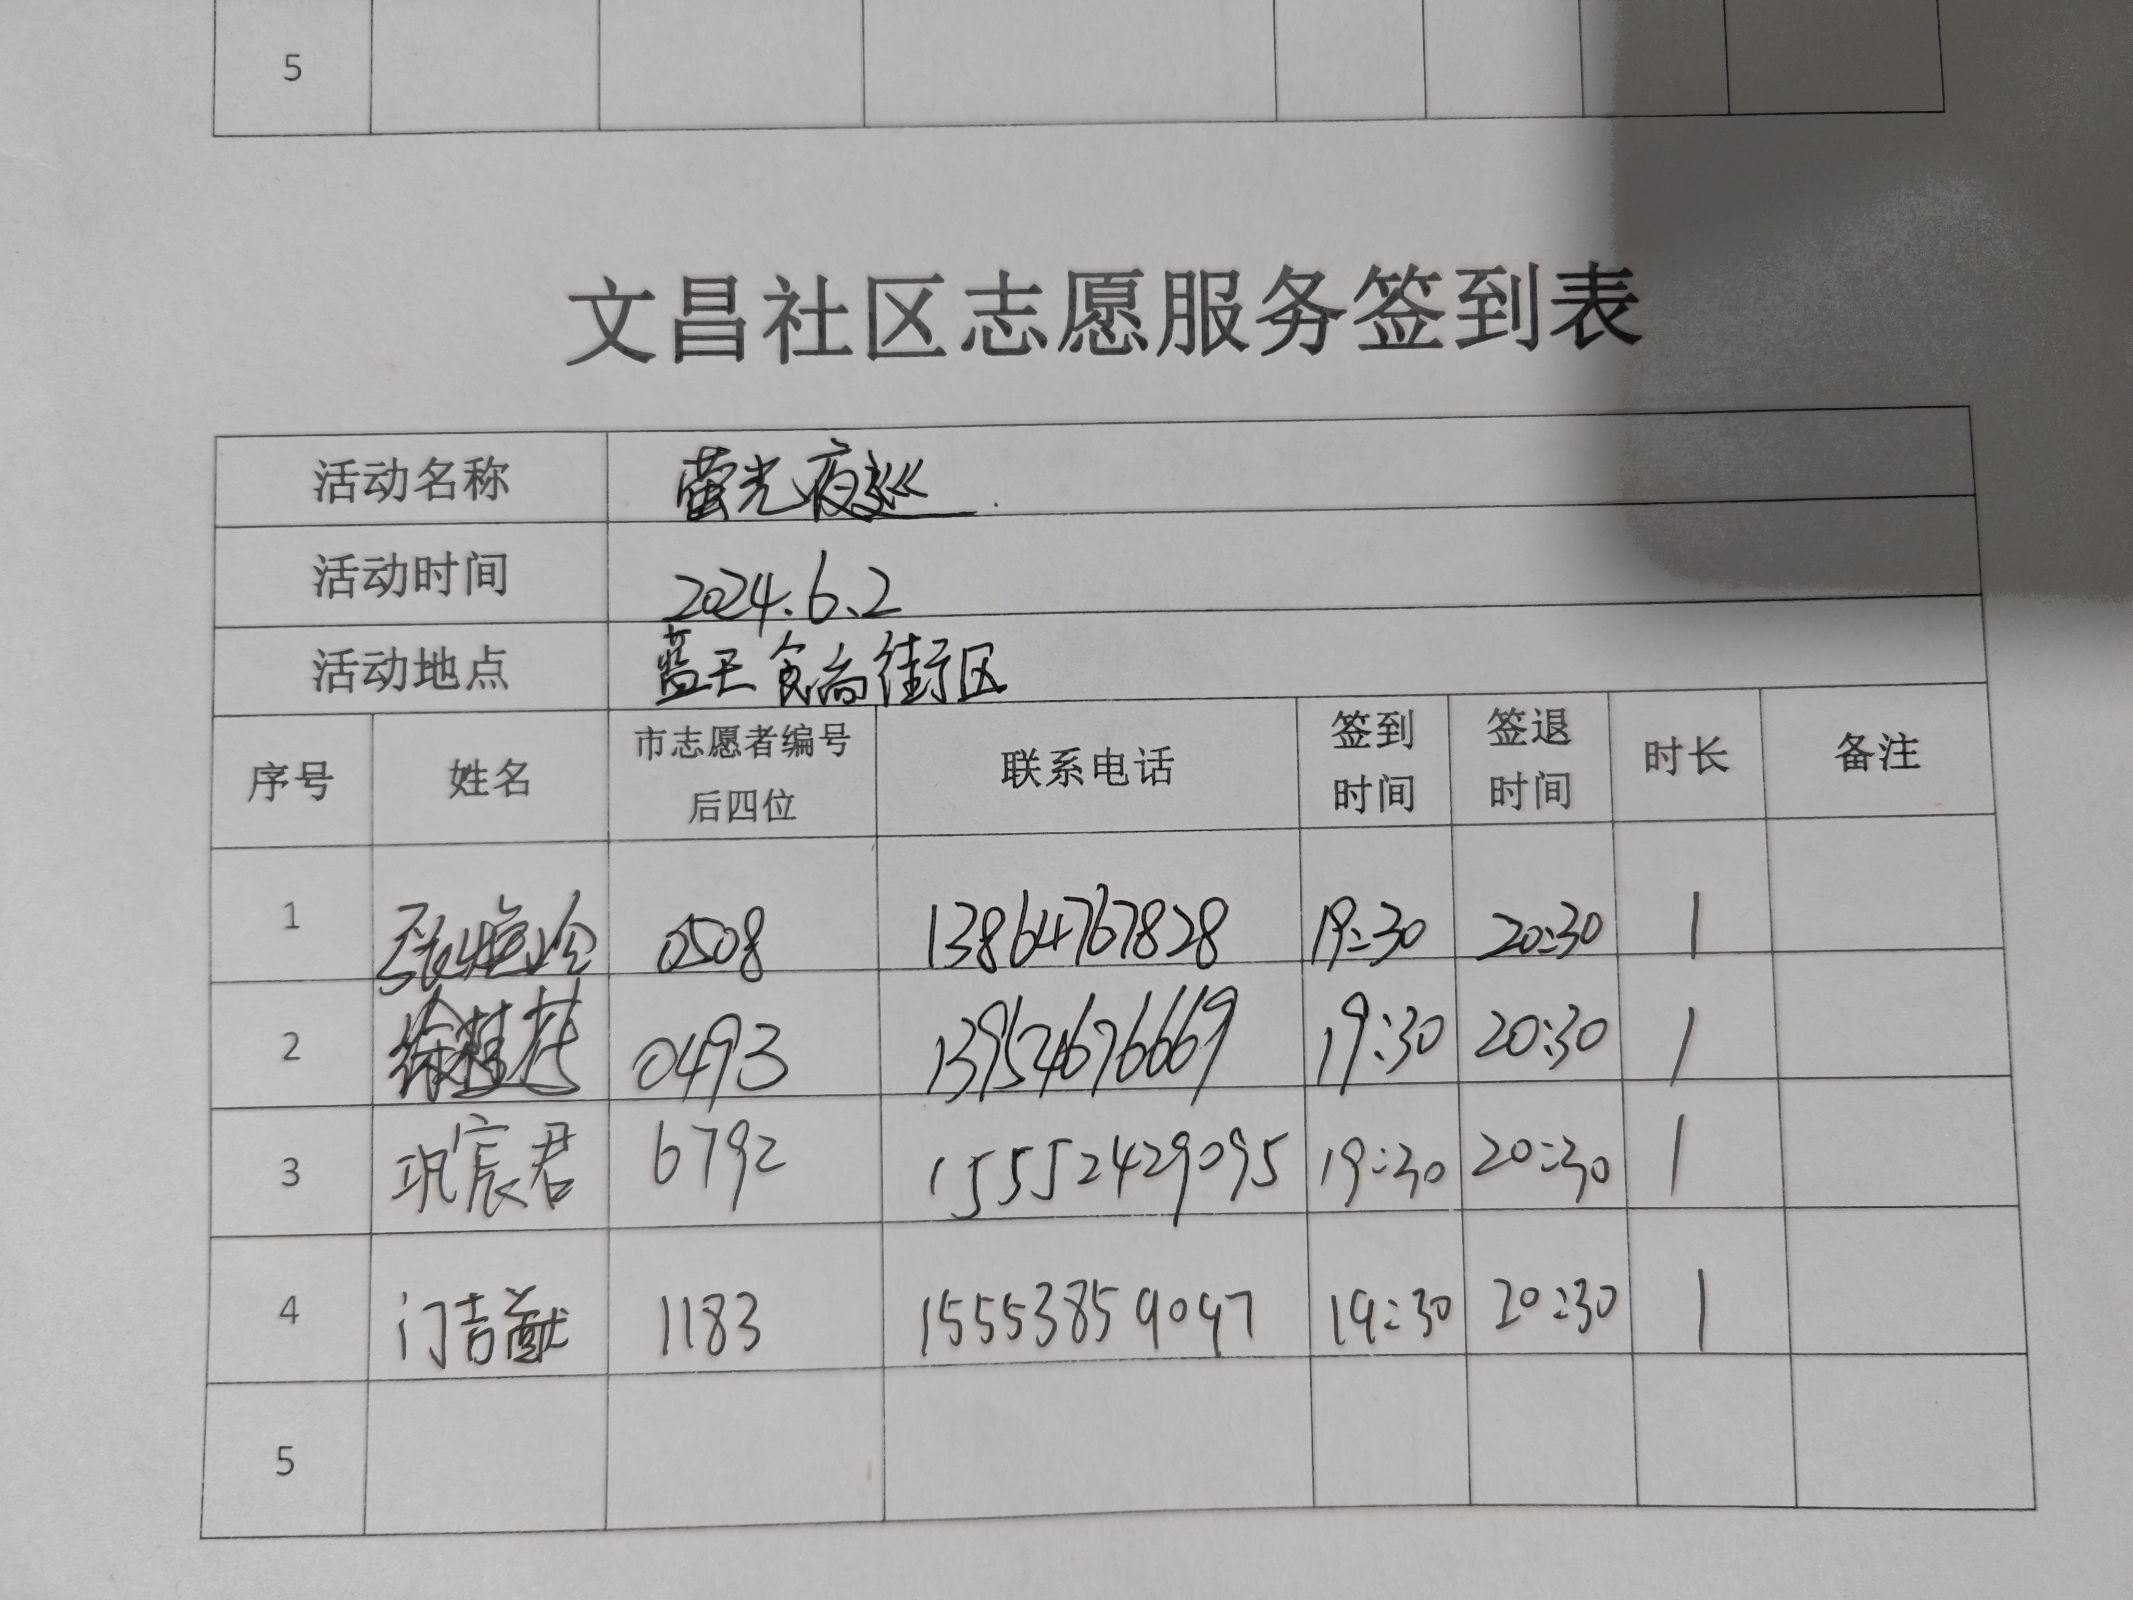 5
文昌社区志愿服务签到表
活动名称 萤光夜巡
活动时间 2024.6.2
活动地点 蓝天食尚街区
序号 姓名 市志愿者编号后四位 联系电话 签到时间 签退时间 时长 备注
1 0508 13864767828 19:30 20:30 1
2 徐桂英 0493 13954676669 19:30 20:30 1
3 巩宸君 6792 15552429095 19:30 20:30 1
4 门吉猷 1183 15553859097 19:30 20:30 1
5